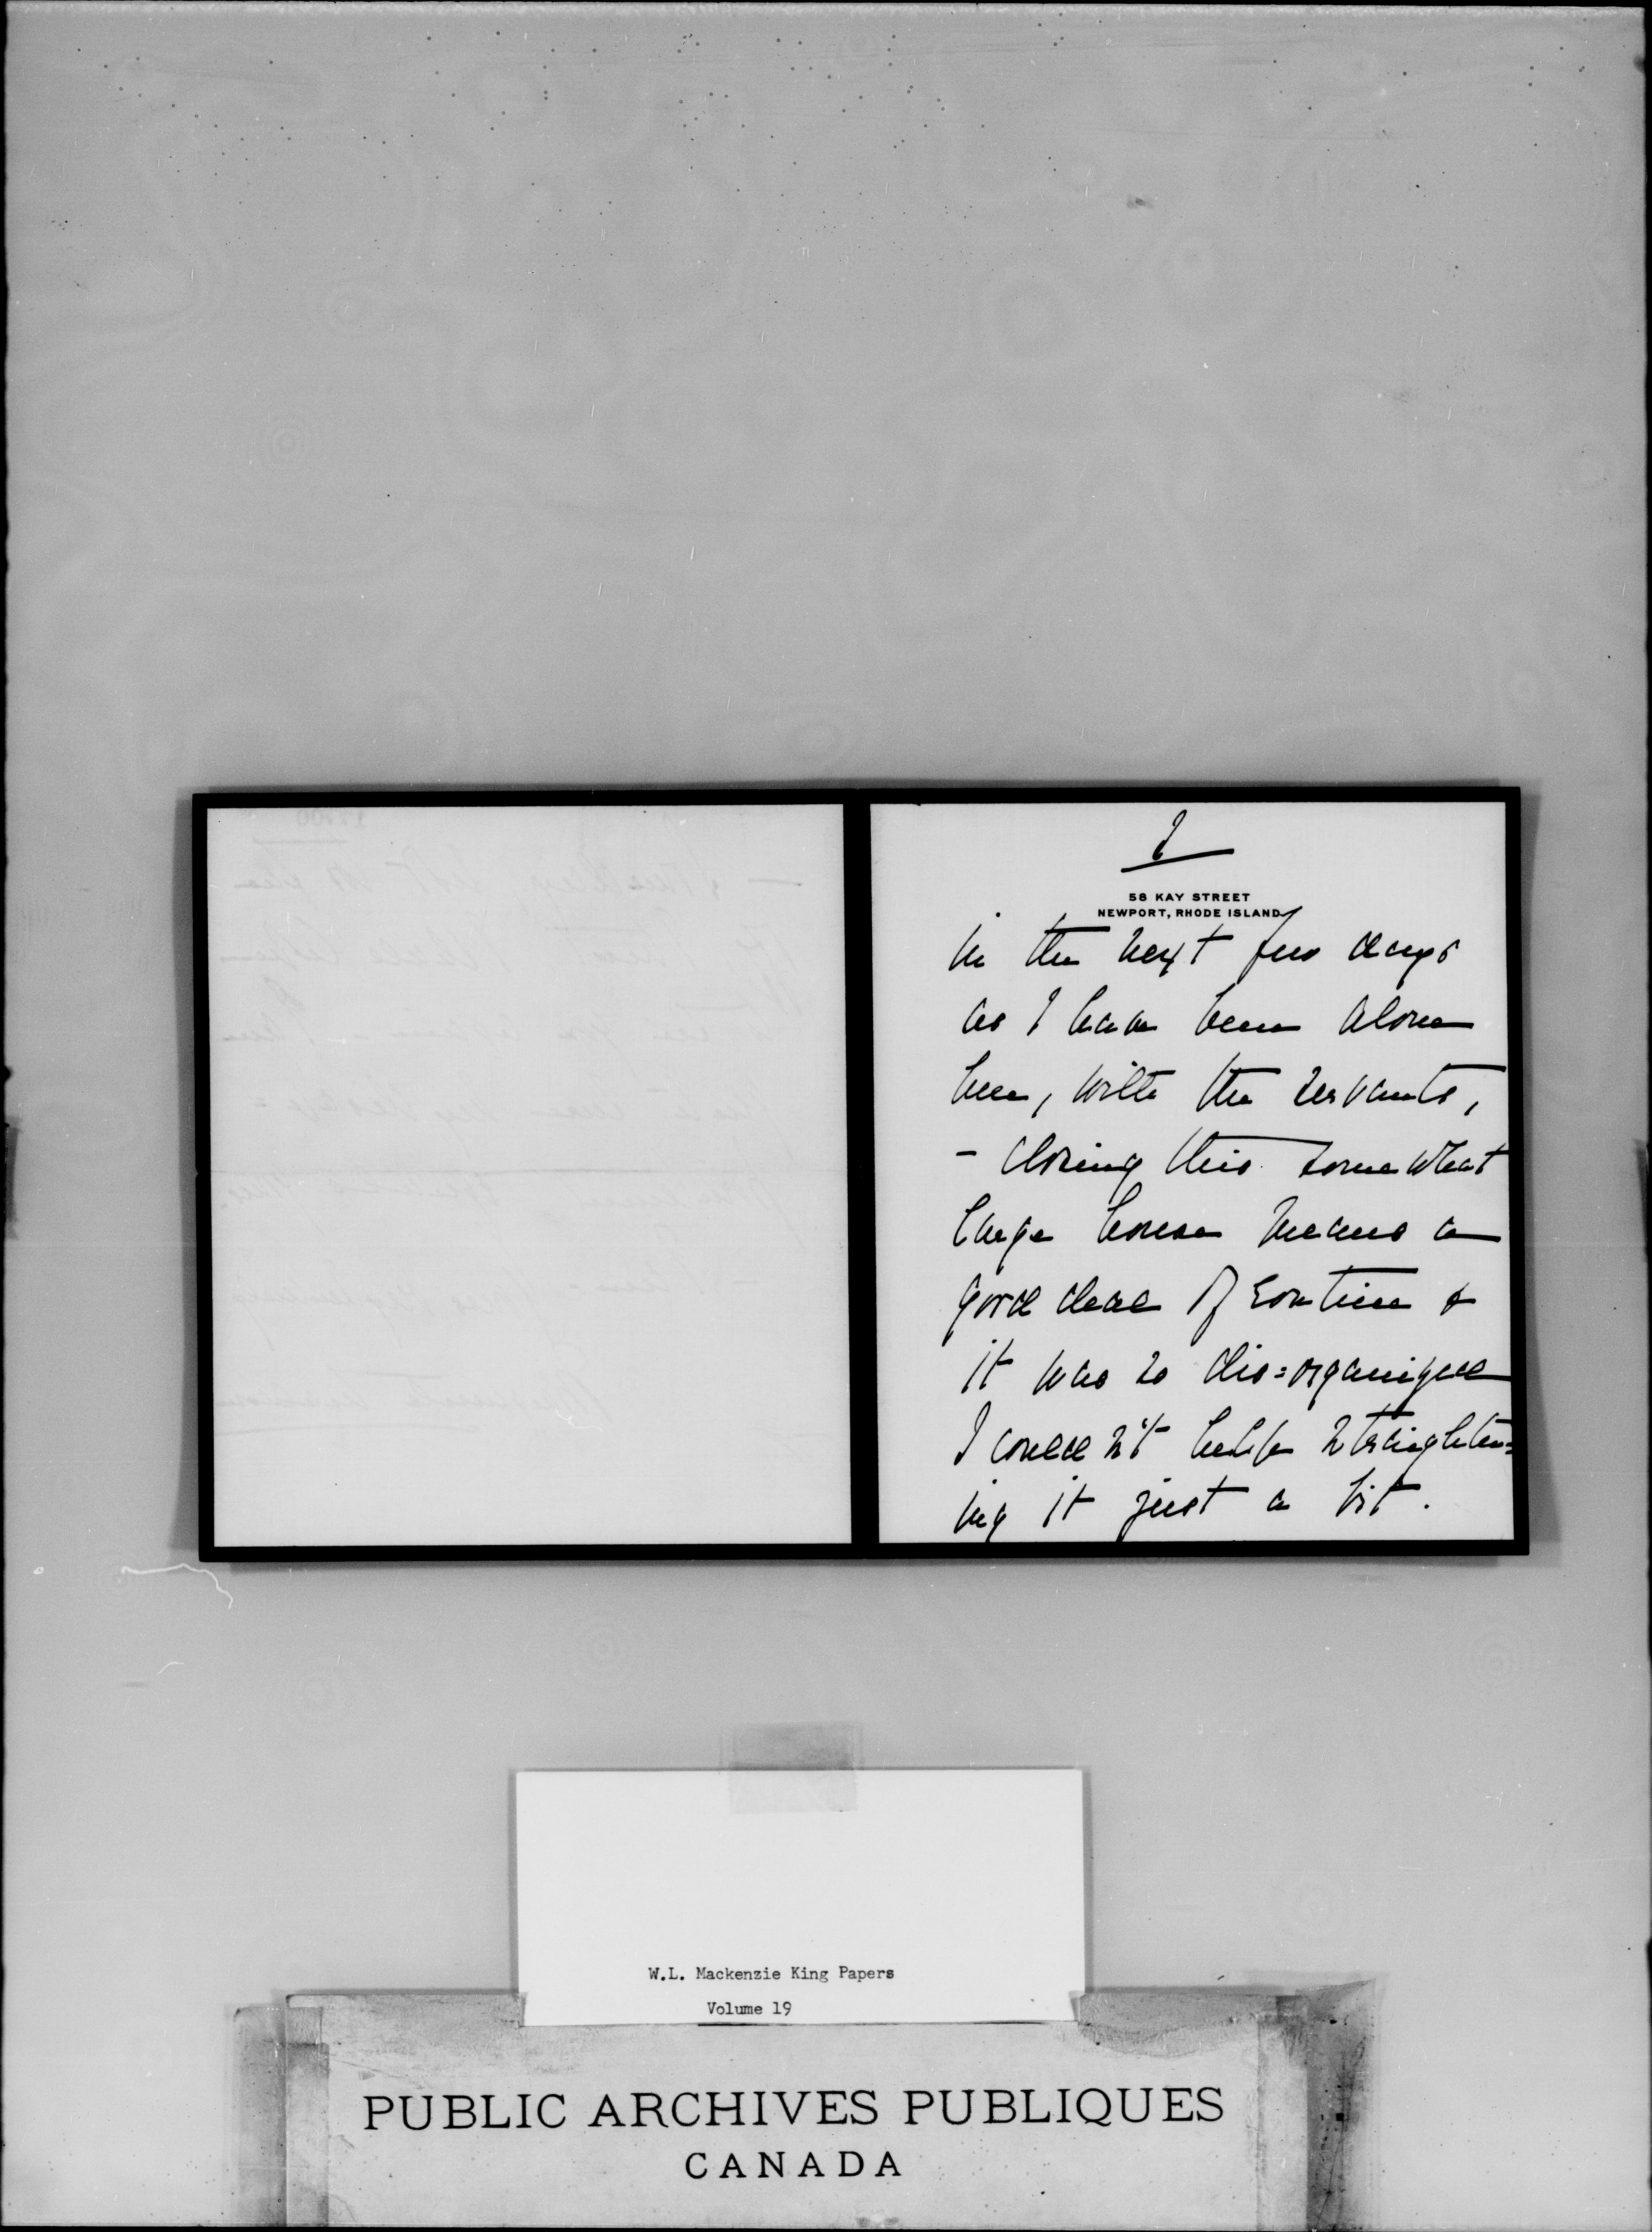 58 KAY STREET
NEWPORT, RHODE ISLAND
in the next few days
as I have been alone
here, with the servants,
- closing this somewhat
large house means a
good deal of routine &
it was so dis=organized
I could n't help straighten=
ing it just a bit.
W.L. Mackenzie King Papers
Volume 19
PUBLIC ARCHIVES PUBLIQUES
CANADA